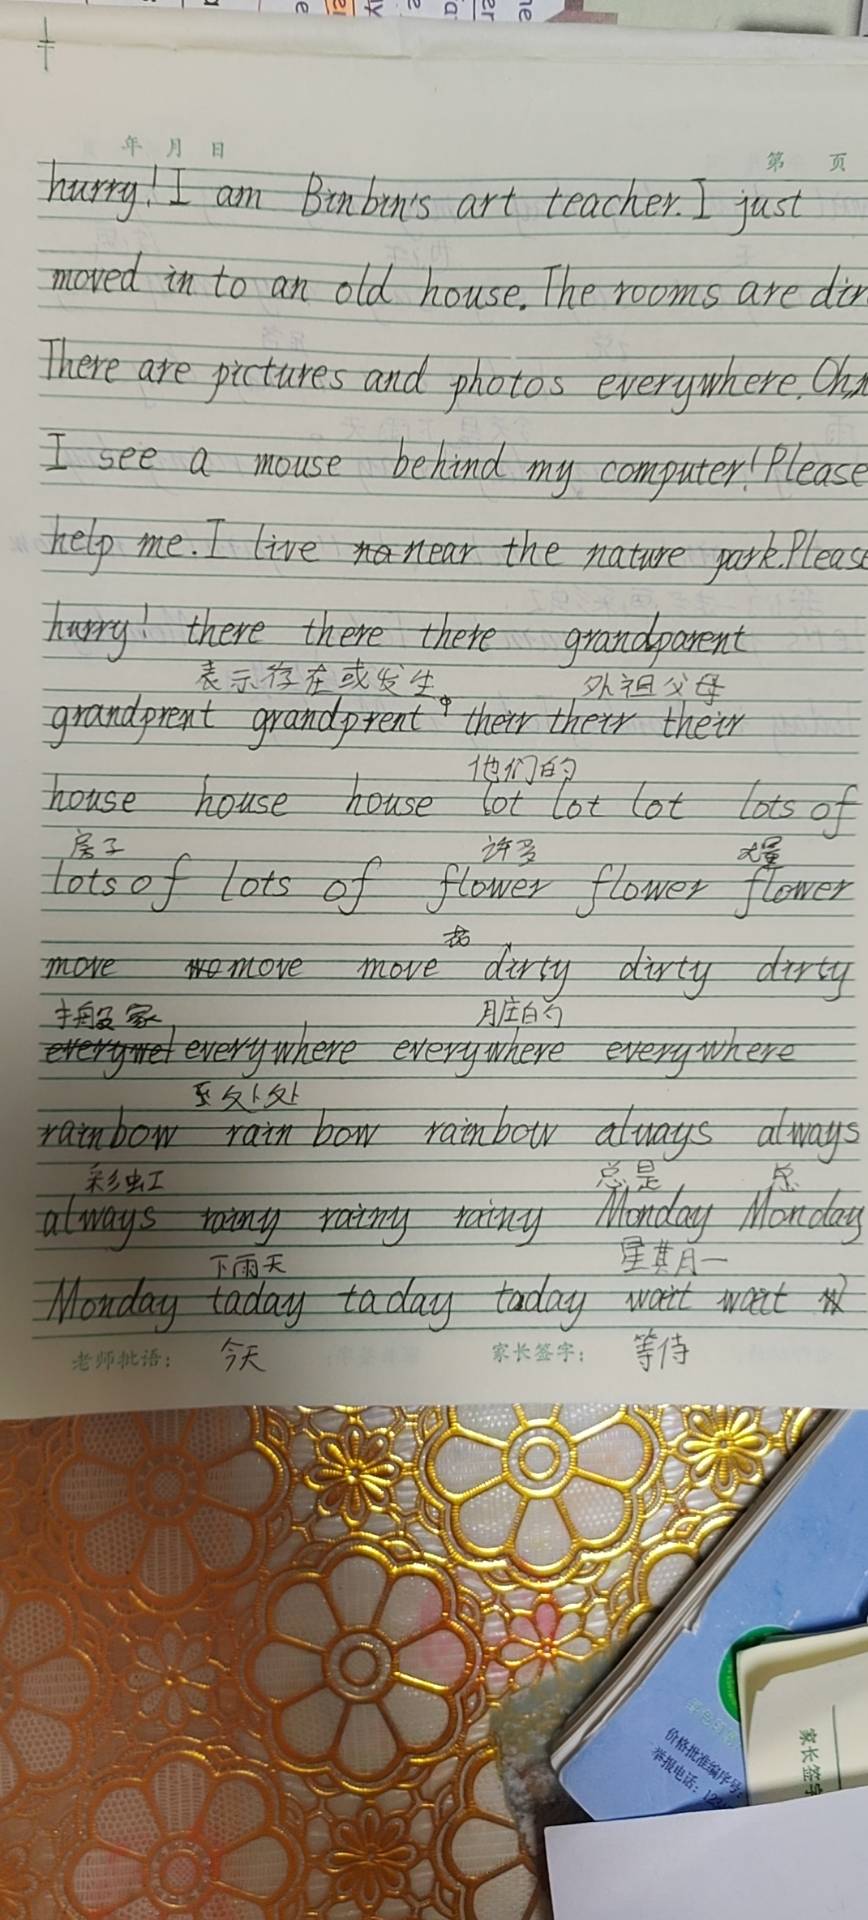 年 月 日
第 页
hurry! I am Binbin's art teacher. I just
moved in to an old house. The rooms are dir
There are pictures and photos everywhere. Oh,
I see a mouse behind my computer! Please
help me. I live near the nature park. Pleas
hurry! there there there grandparent
表示存在或发生 外祖父母
grandprent grandprent their their their
他们的
house house house lot lot lot lots of
房子 许多 大量
lots of lots of flower flower flower
move move move dirty dirty dirty
搬家 脏的
everywhere everywhere everywhere
处处
rainbow rain bow rainbow always always
彩虹 总是 总
always rainy rainy rainy Monday Monday
下雨天 星其月一
Monday taday taday taday wait wait
老师批语： 今天 家长签字： 等待
价格批准编序号:
举报电话: 12
家长签字